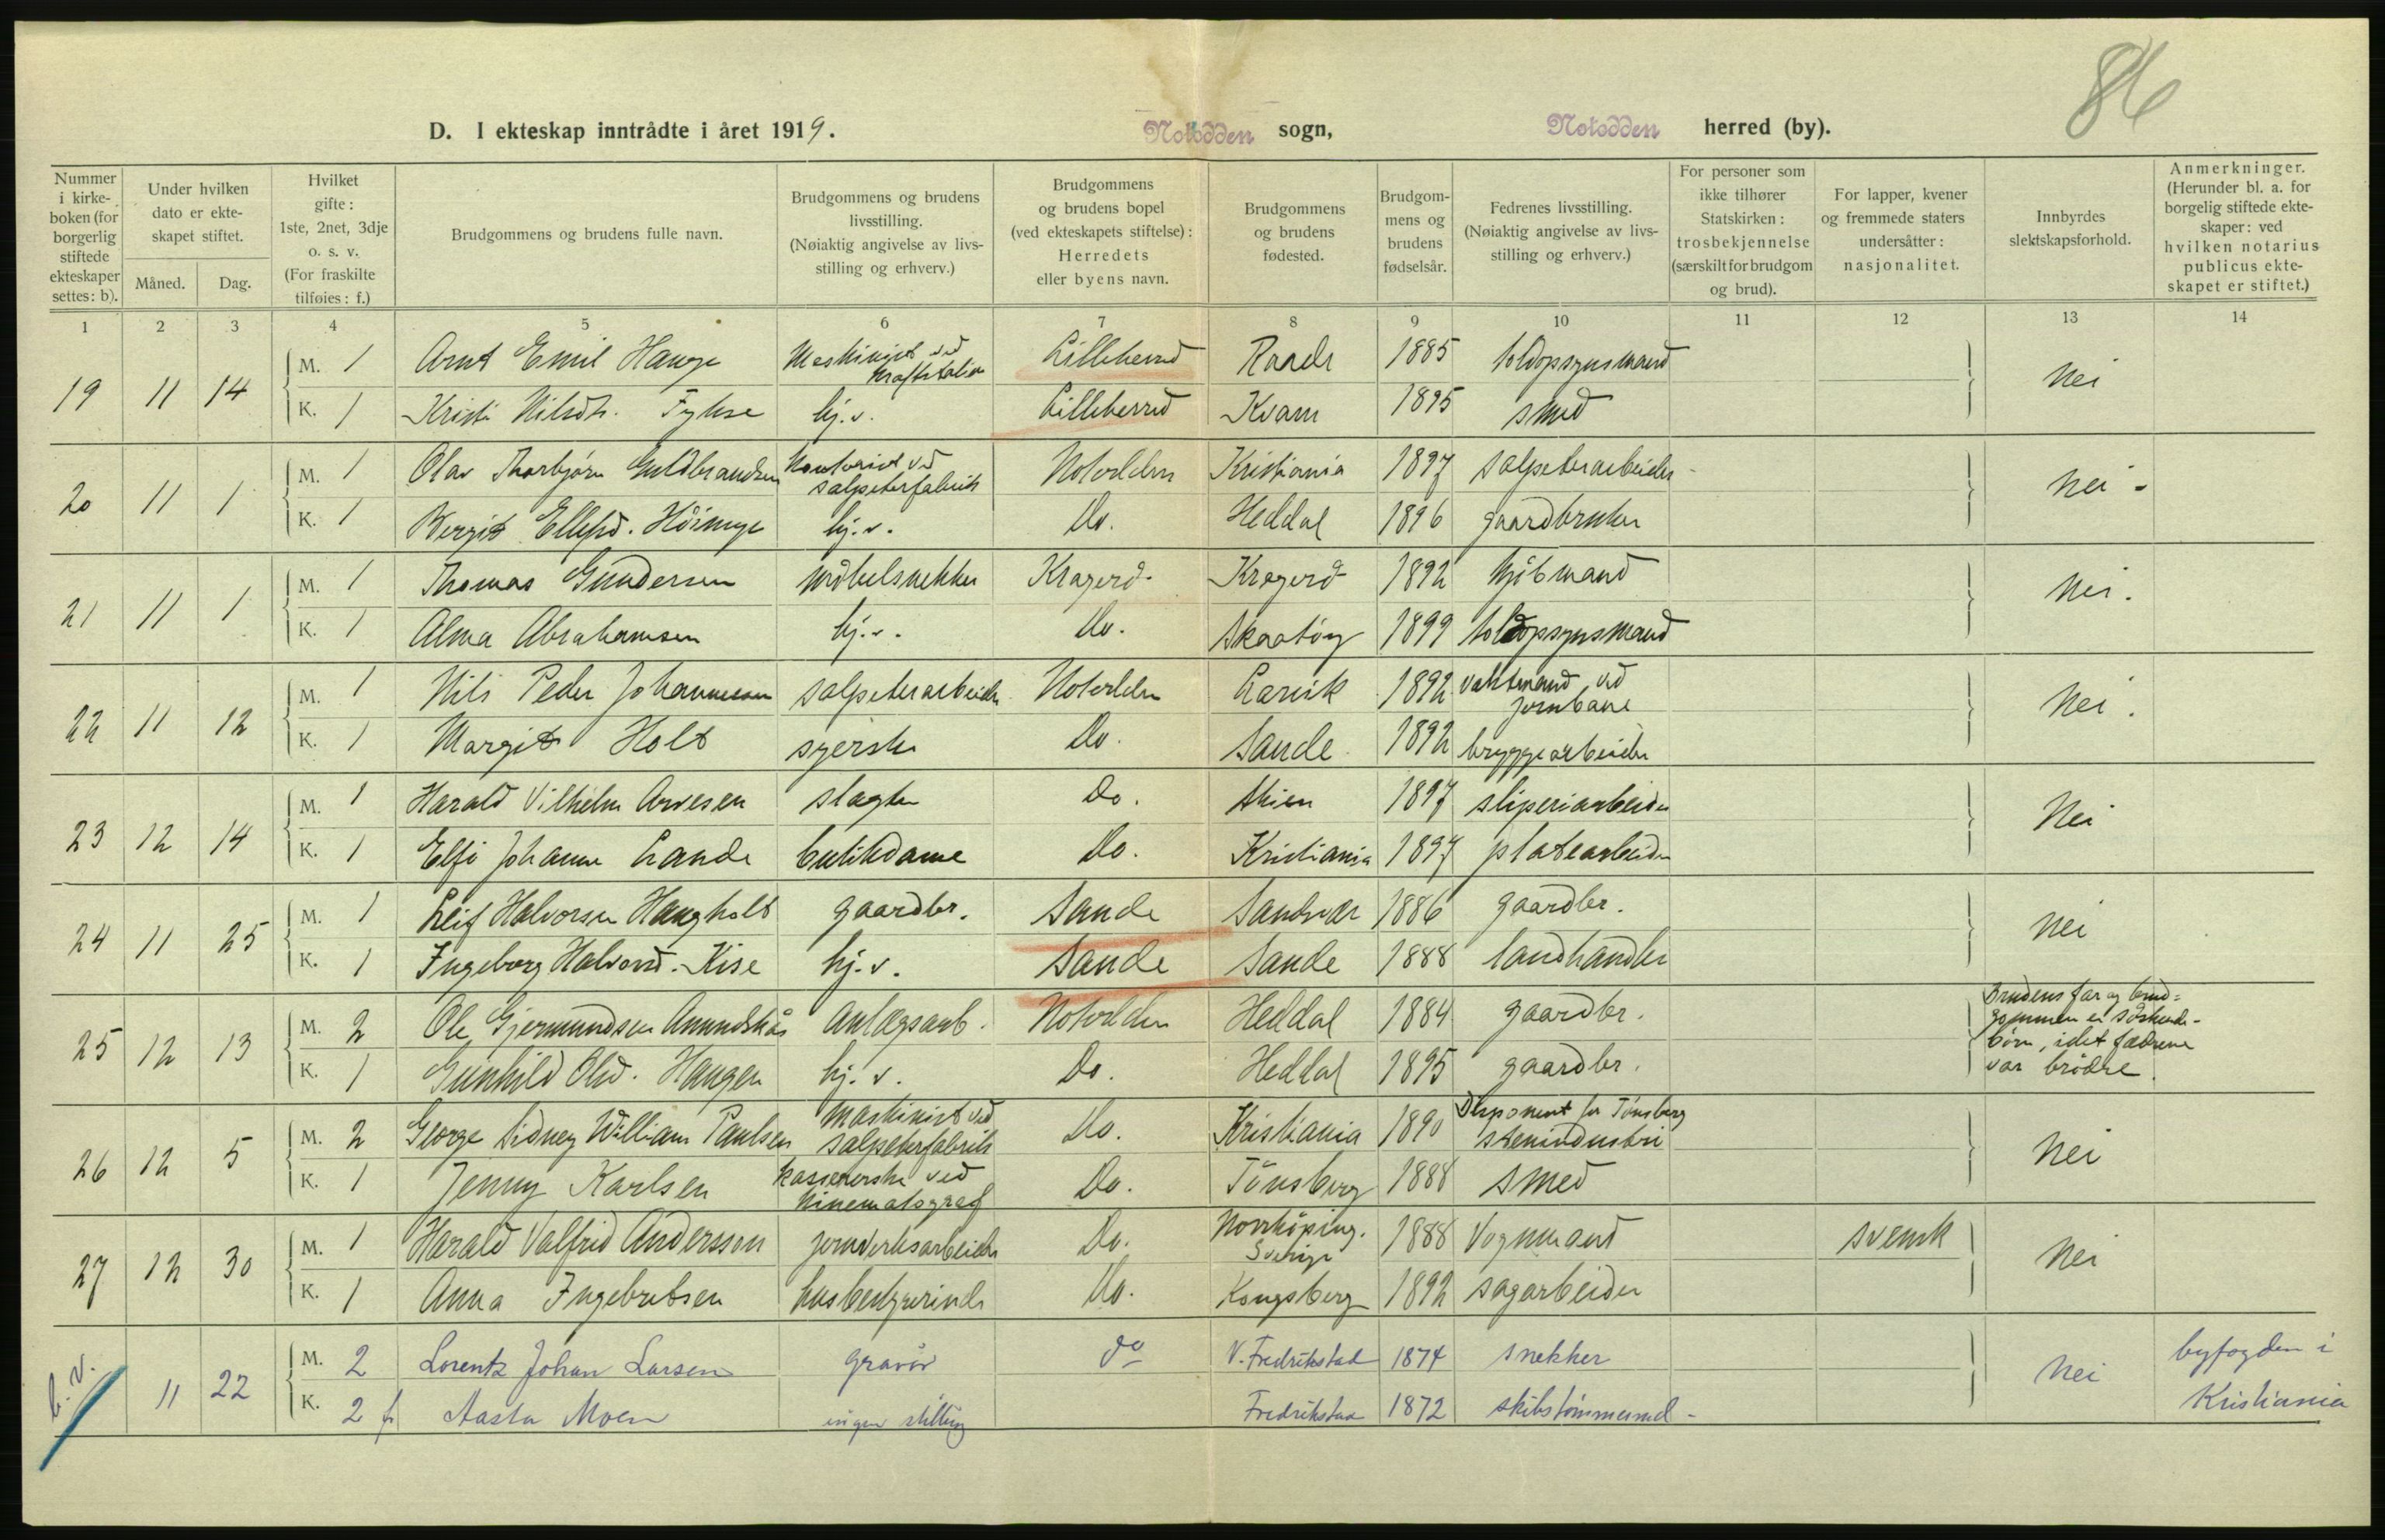 86
D. I ekteskap inntrådte i året 1919. Notodden sogn, Notodden herred (by).
Nummer i kirke-boken (for borgerlig stiftede ekteskaper settes: b). | Under hvilken dato er ekte-skapet stiftet. Måned. Dag. | Hvilket gifte: 1ste, 2net, 3dje o. s. v. (For fraskilte tilføies: f.) | Brudgommens og brudens fulle navn. | Brudgommens og brudens livsstilling. (Nøiaktig angivelse av livs-stilling og erhverv.) | Brudgommens og brudens bopel (ved ekteskapets stiftelse): Herredets eller byens navn. | Brudgommens og brudens fødested. | Brudgom-mens og brudens fødselsår. | Fedrenes livsstilling. (Nøiaktig angivelse av livs-stilling og erhverv.) | For personer som ikke tilhører Statskirken: trosbekjennelse (særskilt for brudgom og brud). | For lapper, kvener og fremmede staters undersåtter: nasjonalitet. | Innbyrdes slektskapsforhold. | Anmerkninger. (Herunder bl. a. for borgelig stiftede ekte-skaper: ved hvilken notarius publicus ekte-skapet er stiftet.)
1 2 3 4 5 6 7 8 9 10 11 12 13 14
19 11 14 M. 1 Arnt Emil Hauge Maskinist ved kraftstation Lilleherred Raade 1885 toldopsynsmand Nei
K. 1 Kristi Nilsdt. Fykse hj. v. Lilleherred Kvam 1895 smed
20 11 1 M. 1 Olav Thorbjørn Guldbrandsen Kontorist ved salpeterfabrik Notodden Kristiania 1897 salpeterarbeider Nei -
K. 1 Bergit Ellefsd. hj. v. Do. Heddal 1896 gaardbruker
21 11 1 M. 1 Thomas Gundersen møbelsnekker Kragerø Kragerø 1892 kjøbmand Nei.
K. 1 Alma Abrahamsen hj. v. Do. Skaatøy 1899 toldopsynsmand
22 11 12 M. 1 Nils Peder Johannessen salpeterarbeider Notodden Larvik 1892 vaktmand ved jernbane Nei.
K. 1 Margit Holt syerske Do. Sande 1892 bryggearbeider
23 12 14 M. 1 Harald Vilhelm Arvesen slagter Do. Skien 1897 sliperiarbeider Nei
K. 1 Elfi Johanne Lande butikdame Do. Kristiania 1897 platearbeider
24 11 25 M. 1 Leif Halvorsen Haugholt gaardbr. Sande Sandsvær 1886 gaardbr. Nei
K. 1 Ingeborg Halvorsd. Kise hj. v. Sande Sande 1888 landhandler
25 12 13 M. 2 Ole Gjermundsen Amundskås anlægsarb. Notodden Heddal 1884 gaardbr. Brudens far og brud=gommen er søskende-børn, idet fædrene var brødre.
K. 1 Gunhild Olsd. Haugen hj. v. Do. Heddal 1895 gaardbr.
26 12 5 M. 2 George Sidney William Paulsen Maskinist ved salpeterfabrik Do. Kristiania 1890 Disponent for Tønsberg stenindustri Nei
K. 1 Jenny Karlsen kassererske ved kinematograf Do. Tønsberg 1888 smed
27 12 30 M. 1 Harald Valfrid Andersson jernverksarbeider Do. Norrköping. Sverige 1888 Vognmand svensk Nei
K. 1 Anna Ingebretsen husbestyrerinde Do. Kongsberg 1892 sagarbeider
b. v. 11 22 M. 2 Lorentz Johan Larsen gravør do V. Fredrikstad 1874 snekker Nei byfogden i Kristiania
K. 2 f Aasta Moen ingen stilling Fredrikstad 1872 skibstømmermd -